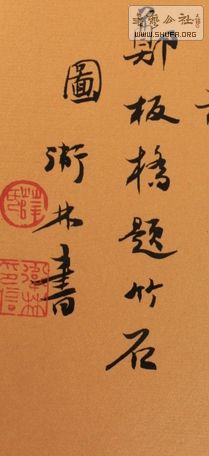 書藝公社
WWW.SHUFA.ORG
鄭板橋題竹石
圖 衛林書
薛氏
衛林印信